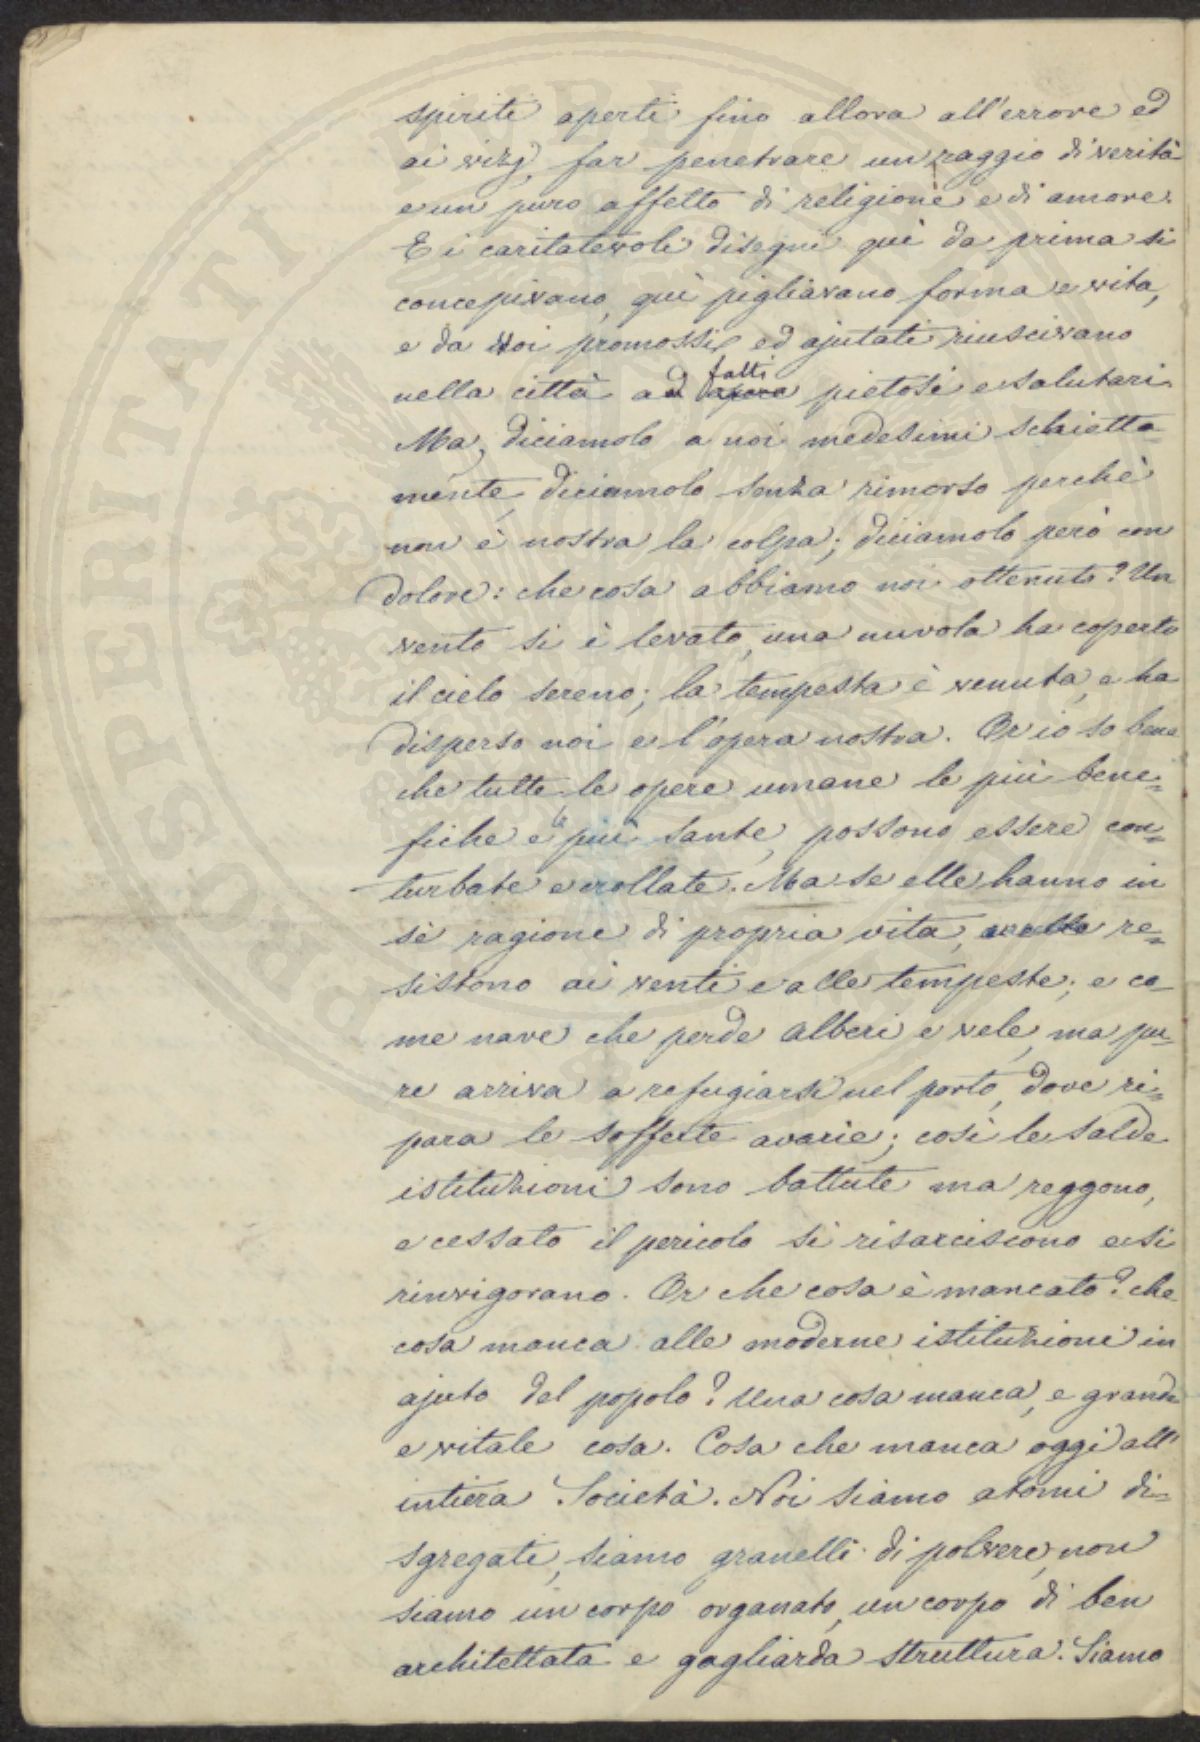 spiriti aperti fino allora all'errore ed
ai vizj, far penetrare un raggio di verità
e un puro affetto di religione e di amore.
E i caritatevoli disegni quì da prima si
concepivano, quì pigliavano forma e vita,
e da noi promossi ed ajutati riuscivano
nella città ad fatti pietosi e salutari.
Ma, diciamolo a noi medesimi schietta
mente, diciamolo senza rimorso perchè
non è nostra la colpa; diciamolo però con
dolore: che cosa abbiamo noi ottenuto? Un
vento si è levato, una nuvola ha coperto
il cielo sereno; la tempesta è venuta, e ha
disperso noi e l'opera nostra. Or io so bene
che tutte le opere umane le più bene=
fiche e le più sante, possono essere con=
turbate e crollate. Ma se elle hanno in
sè ragione di propria vita, re=
sistono ai venti e alle tempeste; e co-
me nave che perde alberi e vele, ma pu=
re arriva a refugiarsi nel porto, dove ri=
para le sofferte avarie; così le salde
istituzioni sono battute ma reggono,
e cessato il pericolo si risarciscono e si
rinvigorano. Or che cosa è mancato? che
cosa manca alle moderne istituzioni in
ajuto del popolo? Una cosa manca, e grande
e vitale cosa. Cosa che manca oggi all'
intiera Società. Noi siamo atomi di=
sgregati, siamo granelli di polvere, non
siamo un corpo organato, un corpo di ben
architettata e gagliarda struttura. Siamo
PROSPERITATI PUBLICAE